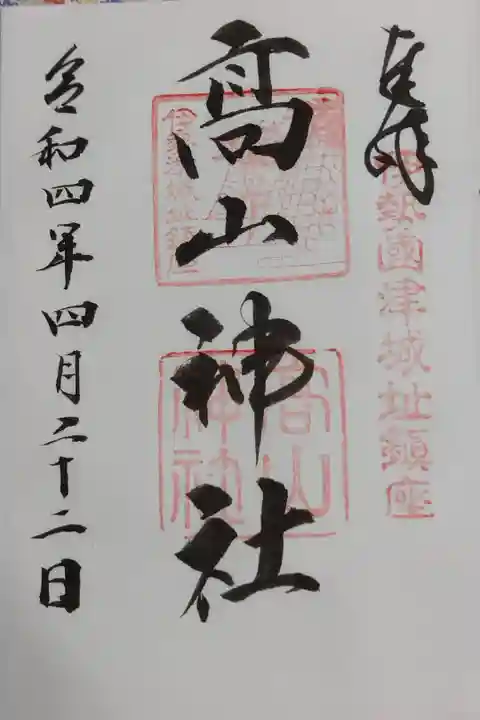 奉拝
伊勢國津城址鎮座
髙山神社
髙山神社
令和四年四月二十二日